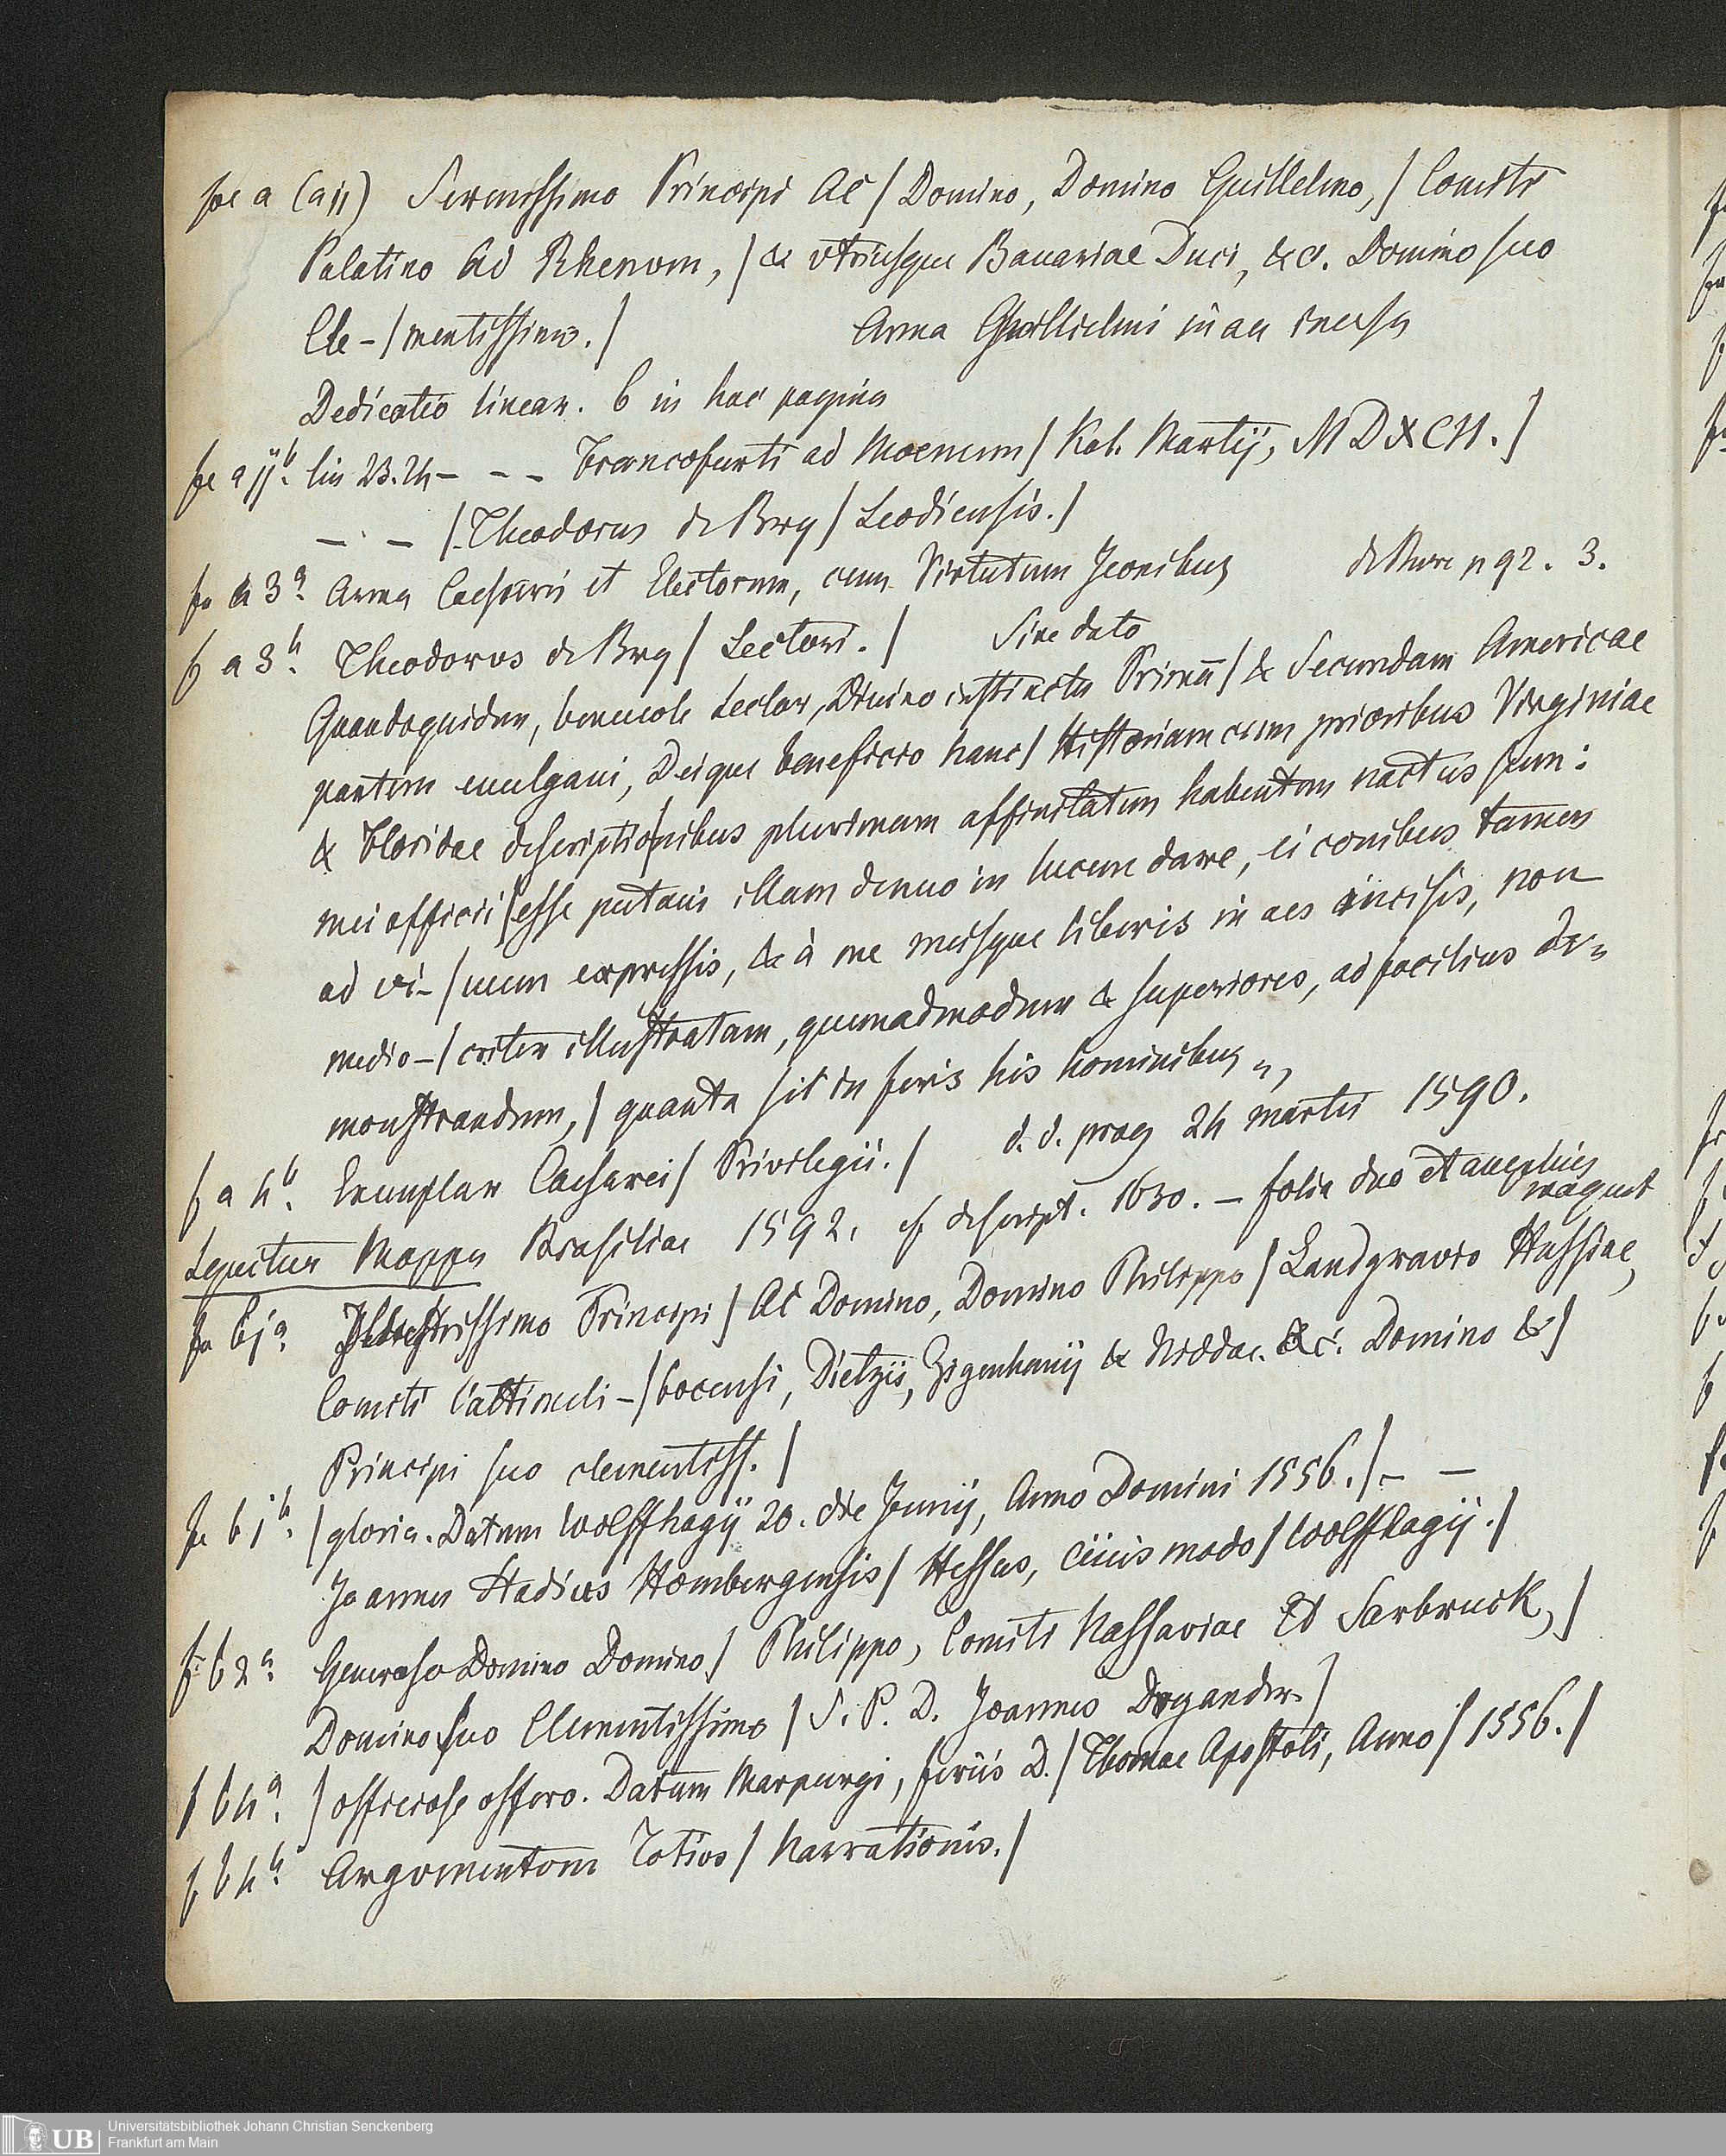 fol a (a ij) Serenissimo Principi Ac / Domino, Domino Guillelmo, / Comiti
Palatino Ad Rhenvm, / & vtriusque Bauariae Duci, &c. Domino suo
Cle- / mentissimo. / Arma Guillielmi in aes incisa
Dedicatio linear. 6 in hac pagina
fo a ijb. lin 23. 24 - - - Francofurti ad Moenum / Kal. Martij, M D X CII. /
- - / Theodorus de Bry / Leodiensis. /
fo a 3a. Arma Caesaris et Electorum, cum Virtutum Iconibus de Bure p 92. 3.
f a 3b. Theodorvs de Bry / Lectori. / Sine dato
Quandoquidem, beneuole Lector, Diuino instinctu Primā / & Secundam Americae
partem euulgaui, Deique beneficio hanc / Historiam cum prioribus Virginiae
& Floridae descriptio / nibus plurimum affinitatem habentem nactus sum:
mei officii / esse putaui illam denuo in lucem dare, ei conibus tamen
ad vi- / uum expressis, & à me meisque liberis in aes incisis, non
medio- / criter illustratam, quemadmodum & superiores, ad facilius de„
monstrandum, / quanta sit in feris his hominibus „,
f a 4b. Exemplar Caesarei / Privilegii. / d. d. prag 24 martii 1590.
Sequitur Mappa Brasiliae 1592. cf descript. 1630. - folia duo et amplius
fo b ja. Illustrissimo Principi / Ac Domino, Domino Philippo / Landgravio Hassiae,
Comiti Cattimeli- / bocensi, Dietzii, Zigenhanij & Niddae. &c. Domino & /
Principi suo clementiss. /
fo b jb. / gloria. Datum Wolffhagij 20. die Junij, Anno Domini 1556. / - -
Joannes Stadius Hombergensis / Hessus, ciuis modo / Wolffhagij. /
f b 2a. Generoso Domino Domino / Philippo, Comiti Nassaviae Et Sarbruck, /
Domino suo Clementissimo / S. P. D. Joannes Dryander. /
f b 4a. / officiose offero. Datum Marpurgi, feriis D. / Thomae Apostoli, Anno / 1556. /
f b 4b. Argvmentvm Totivs / Narrationis. /
UB Universitätsbibliothek Johann Christian Senckenberg
Frankfurt am Main